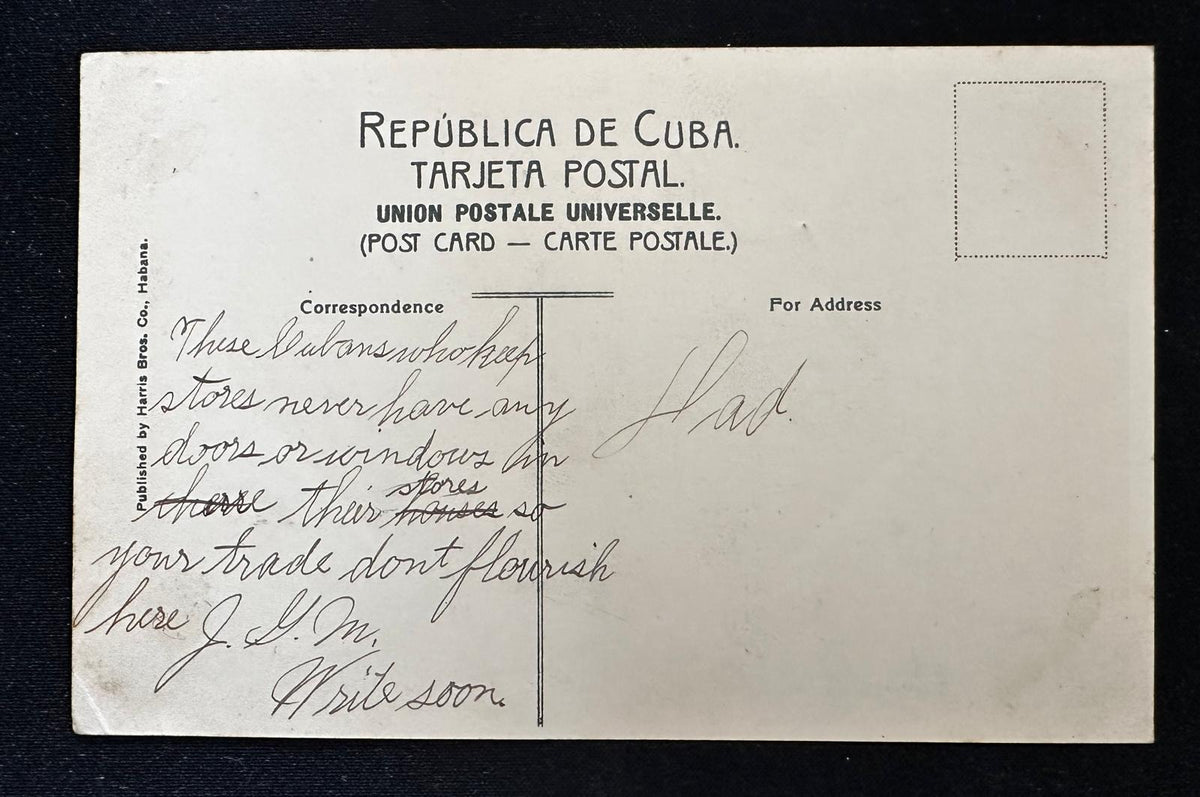 REPÚBLICA DE CUBA.
TARJETA POSTAL.
UNION POSTALE UNIVERSELLE.
(POST CARD — CARTE POSTALE.)
Published by Harris Bros. Co., Habana.
Correspondence
These Cubans who keep
stores never have any
doors or windows in
there their houses stores so
your trade dont flourish
here J. G. M.
Write soon.
For Address
Dad.